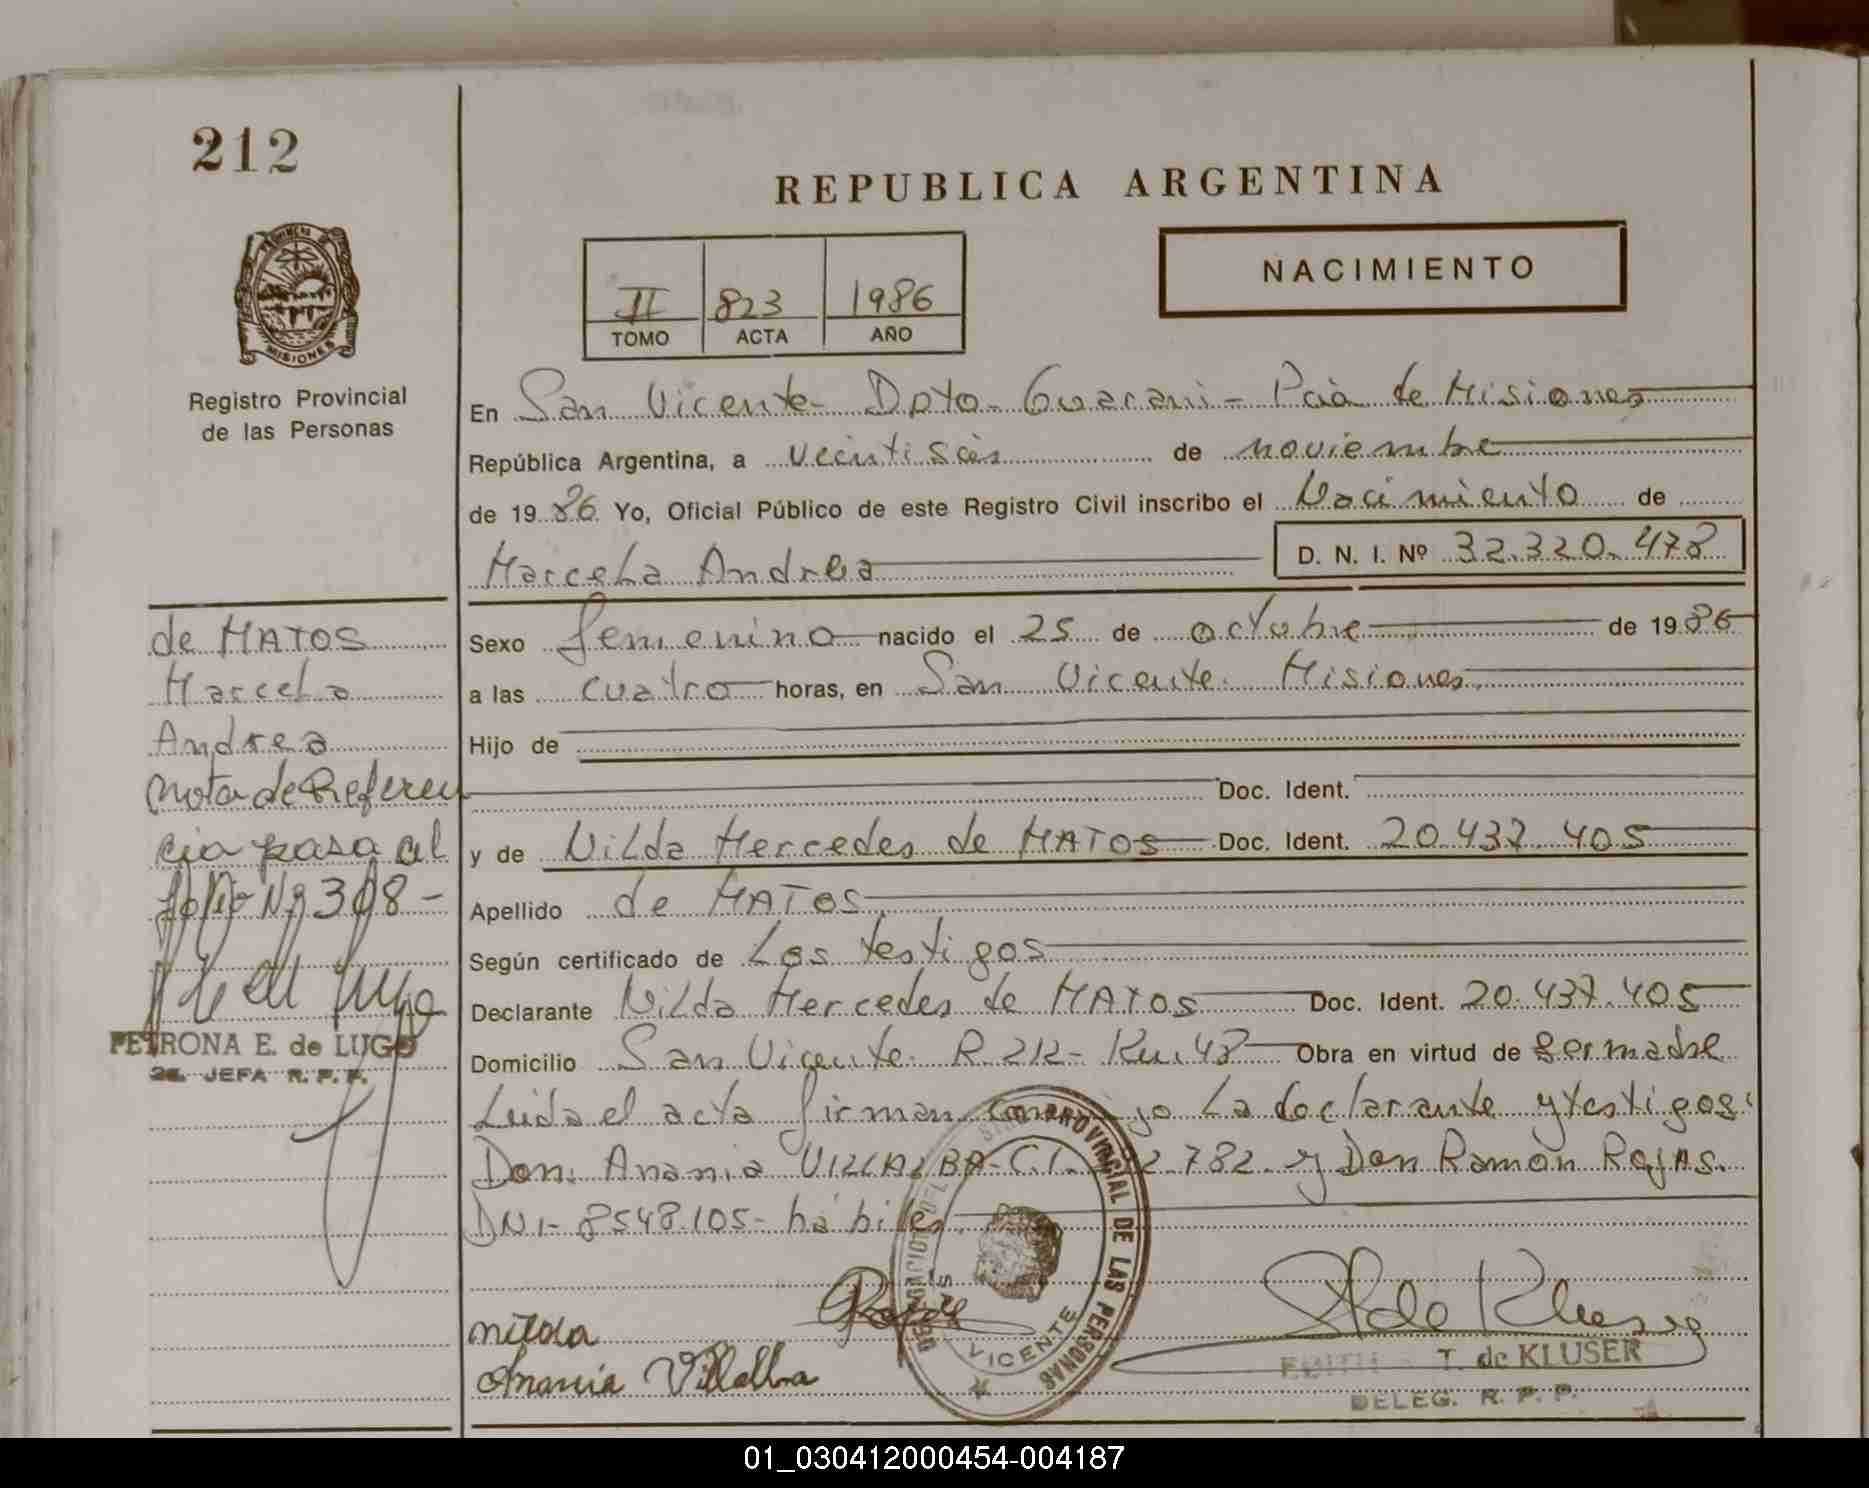 212
REPUBLICA ARGENTINA
NACIMIENTO
II 823 1986
TOMO ACTA AÑO
MISIONES
Registro Provincial
de las Personas
En San Vicente - Dpto - Guarani - Pcia de Misiones
República Argentina, a veintiseis de noviembre
de 1986 Yo, Oficial Público de este Registro Civil inscribo el Nacimiento de
Marcela Andrea D. N. I. Nº 32.320.478
de MATOS
Marcela
Andrea
nota de Referen
cia pasa al
folio Nº 308 -
PETRONA E. de LUGO
JEFA R. P. P.
Sexo femenino nacido el 25 de octubre de 1986
a las cuatro horas, en San Vicente. Misiones
Hijo de
Doc. Ident.
y de Nilda Mercedes de MATOS Doc. Ident. 20.437.405
Apellido de MATOS
Según certificado de Los testigos
Declarante Nilda Mercedes de MATOS Doc. Ident. 20.437.405
Domicilio San Vicente. R. 212 - Km. 48 Obra en virtud de ser madre
Leida el acta firman conmigo La declarante y testigos:
Don: Anania VILLALBA - C.I. 2.782 y Don Ramon ROJAS.
DNI - 8548.105 - hábiles
DELEGACION DEL REGISTRO PROVINCIAL DE LAS PERSONAS
SAN VICENTE
nilda
Rojas
Anania Villalba
T. de Kluser
EDITH T. de KLUSER
DELEG. R. P. P.
01_030412000454-004187